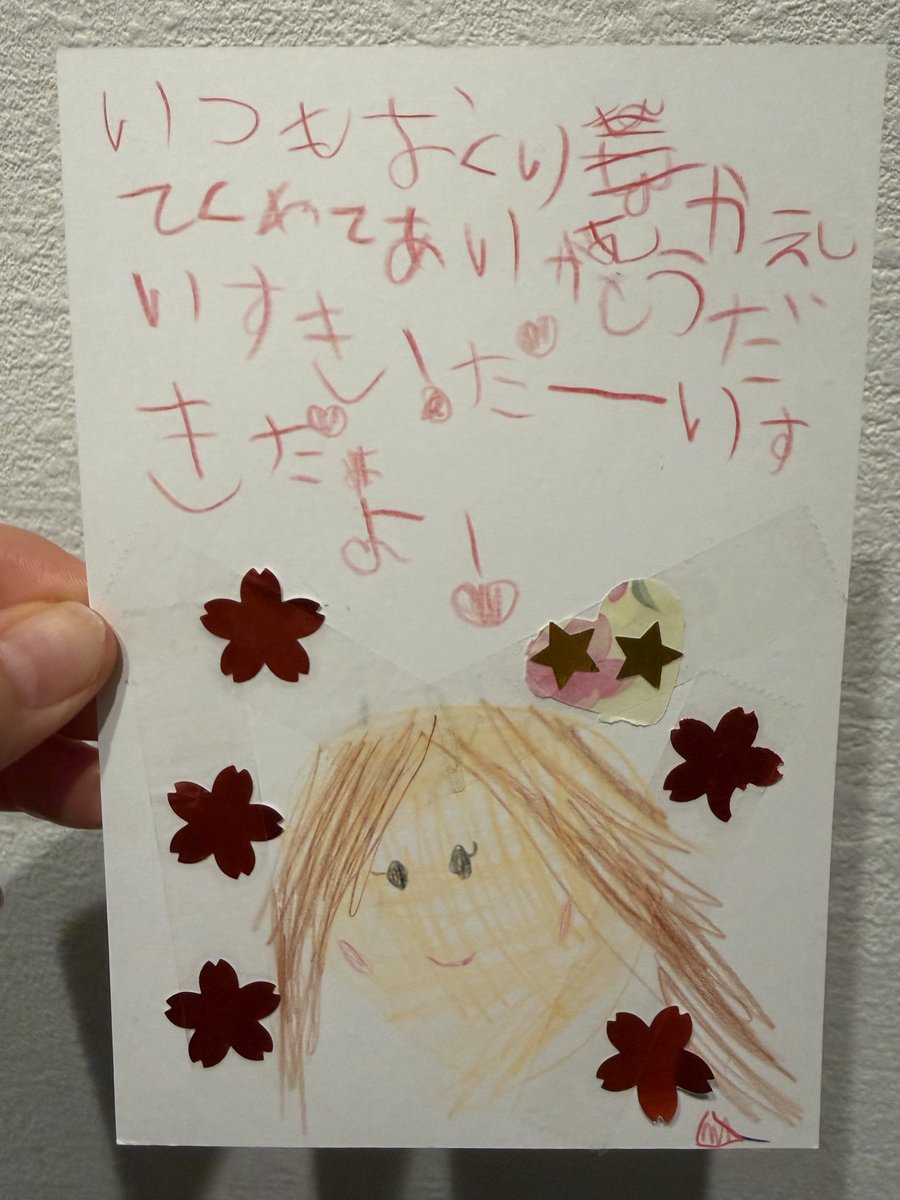 いつもおくりかえし
てくれてありがとうだ
いすき!だーいす
きだよ!